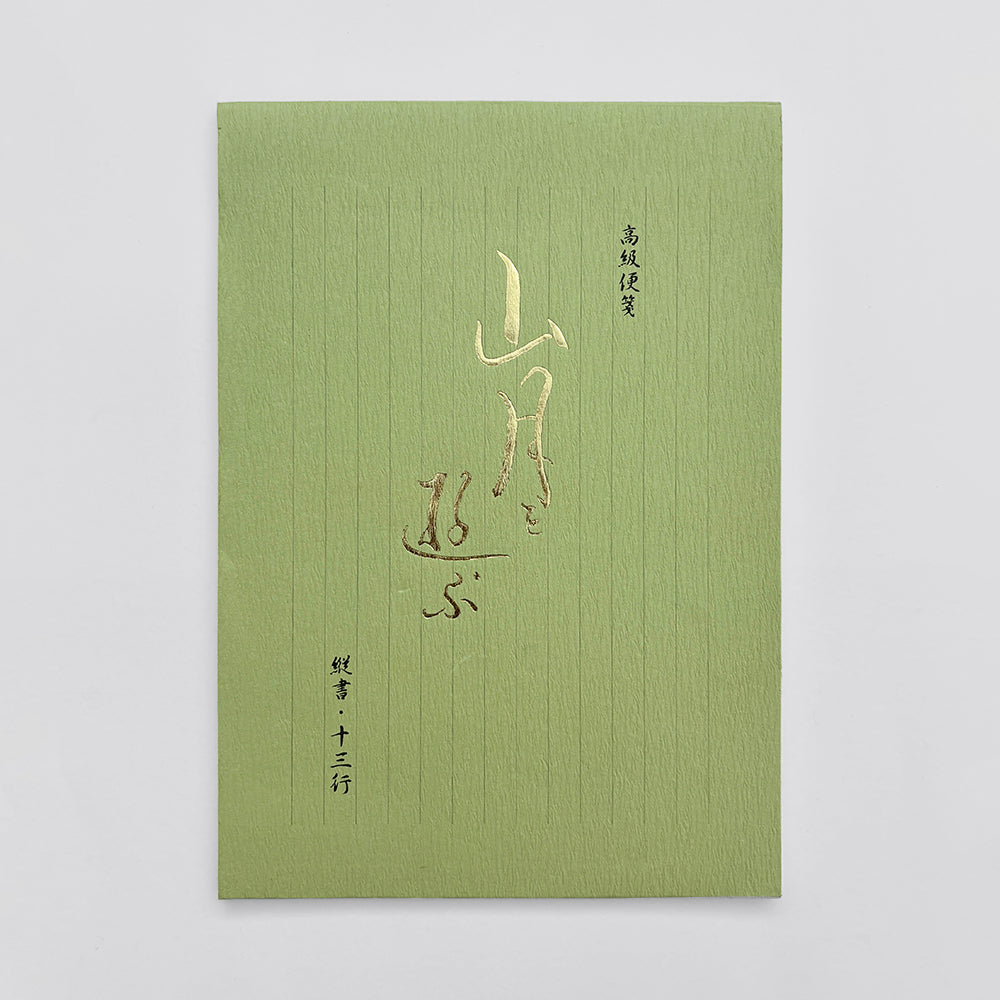 高級便箋
山月と
遊ぶ
縦書・十三行